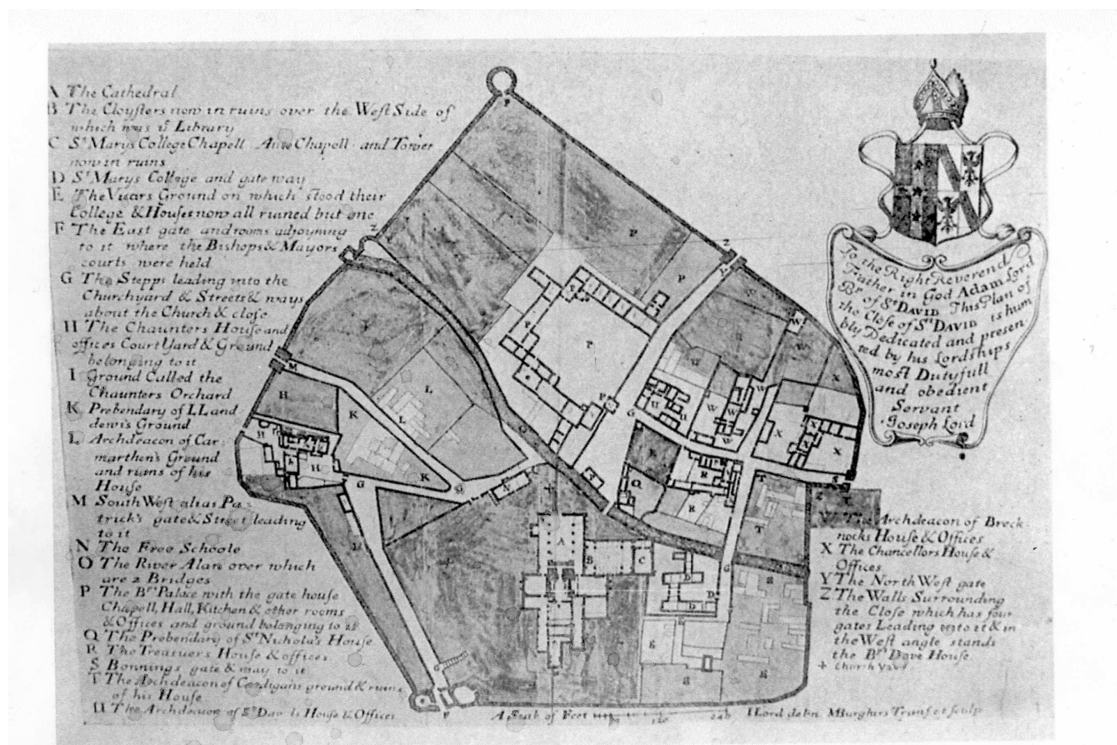 A The Cathedral
B The Cloysters now in ruins over the West Side of
which was ye Library
C St Marys College Chapell Ante Chapell and Tower
now in ruins
D St Marys College and gate way
E The Vicars Ground on which stood their
College & Houses now all ruined but one
F The East gate and rooms adjoyning
to it where the Bishops & Mayors
courts were held
G The Stepps leading into the
Churchyard & Streets & ways
about the Church & close
H The Chaunters House and
offices Court Yard & Ground
belonging to it
I Ground Called the
Chaunters Orchard
K Prebendary of LLand
dewi's Ground
L Archdeacon of Car:
marthen's Ground
and ruins of his
House
M South West alias Pa
trick's gate & Street leading
to it
N The Free Schoole
O The River Alan over which
are 2 Bridges
P The Bps Palace with the gate house
Chapell, Hall, Kitchen & other rooms
& Offices and ground belonging to it
Q The Prebendary of St Nichola's House
R The Treasurers House & offices
S Bonnings gate & way to it
T The Archdeacon of Cardigans ground & ruins
of his House
U The Archdeacon of St Davids House & Offices
W The Archdeacon of Breck
nocks House & Offices
X The Chancellors House &
Offices
Y The North West gate
Z The Walls Surrounding
the Close which has four
gates Leading into it & in
the West angle stands
the Bps Dove House
+ Church Yard
To the Right Reverend
Father in God Adam Lord
Bp of St DAVID This Plan of
the Close of St DAVID is hum
bly Dedicated and presen
ted by his Lordships
most Dutyfull
and obedient
Servant
Joseph Lord
A Scale of Feet
I Lord delin. MBurghers Transf et sculp